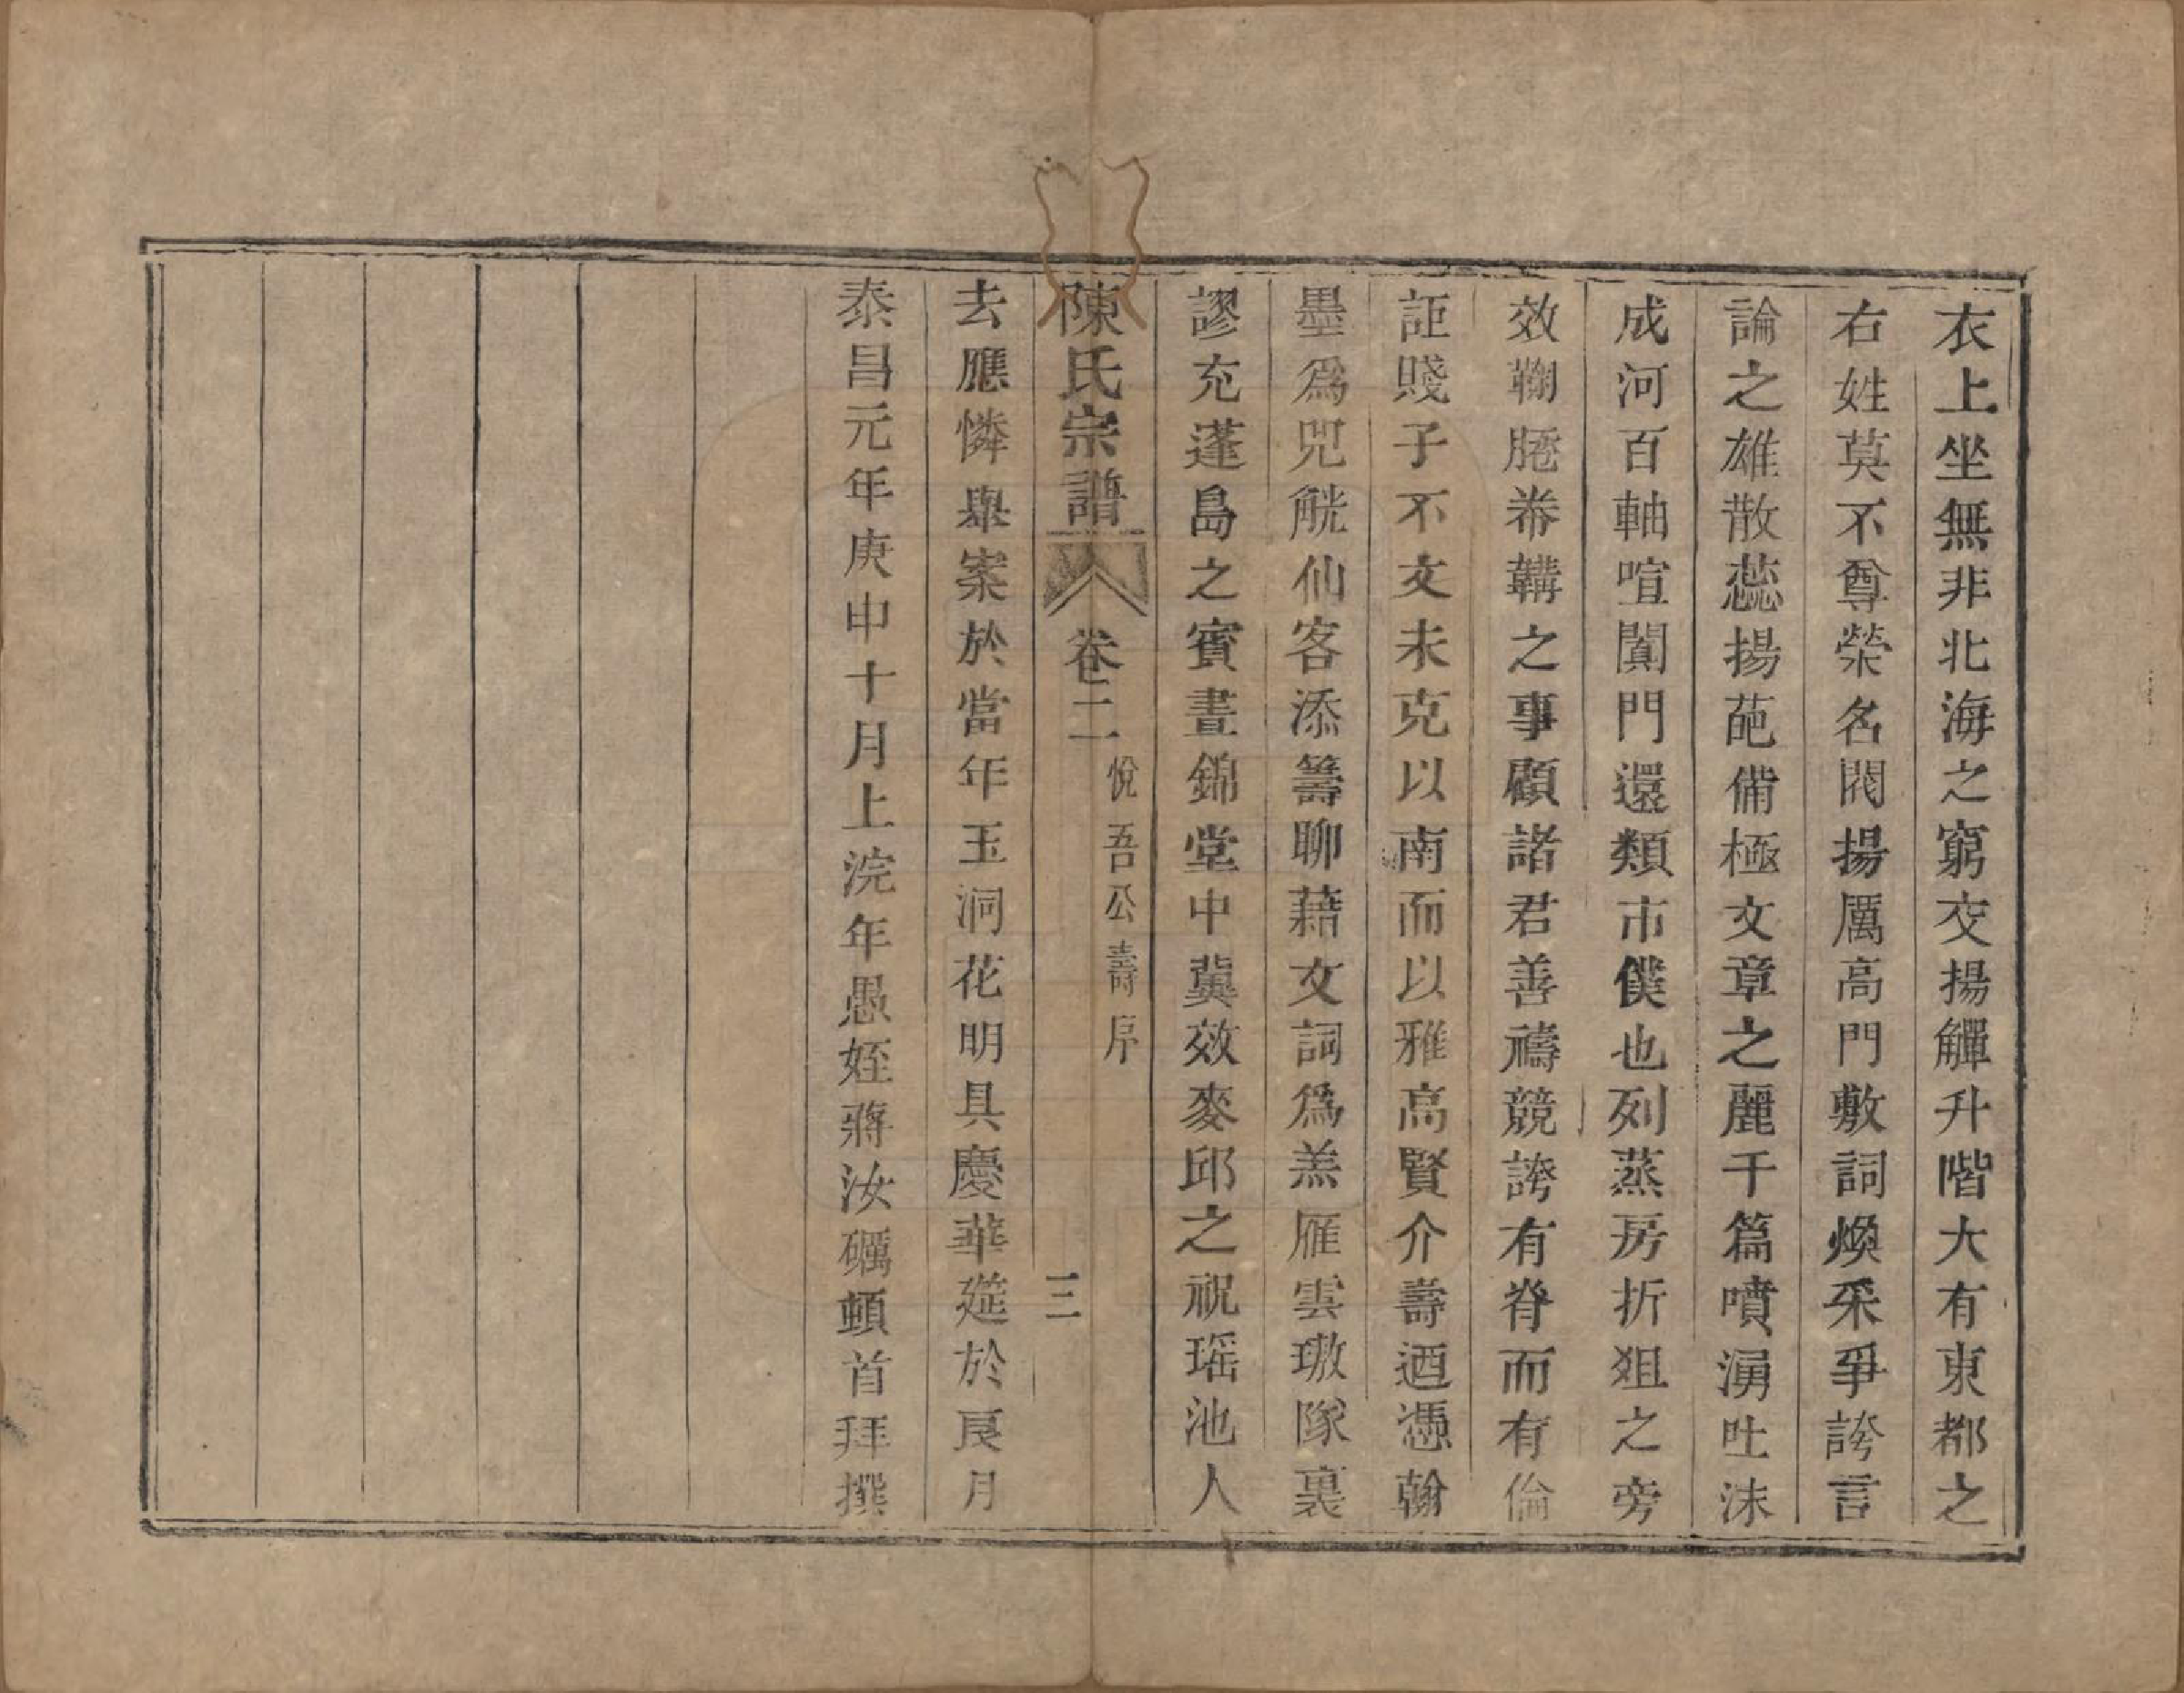 衣上坐無非北海之窮交揚觶升階大有東都之
右姓莫不尊榮名閥揚厲高門敷詞煥采爭誇言
論之雄散蕊揚葩備極文章之麗千篇噴湧吐沫
成河百軸喧闐門還類市僕也列蒸房折俎之旁
效鞠䠆帣韝之事顧諸君善禱競誇有脊而有倫
詎賤子不文未克以南而以雅高賢介壽迺憑翰
墨爲兕觥仙客添籌聊藉文詞爲羔雁雲璈隊裏
謬充蓬島之賓晝錦堂中冀效麥邱之祝瑶池人
陳氏宗譜 卷二 悅吾公壽序 三
去應憐舉案於當年玉洞花明具慶華筵於良月
泰昌元年庚申十月上浣年愚姪蔣汝礪頓首拜撰